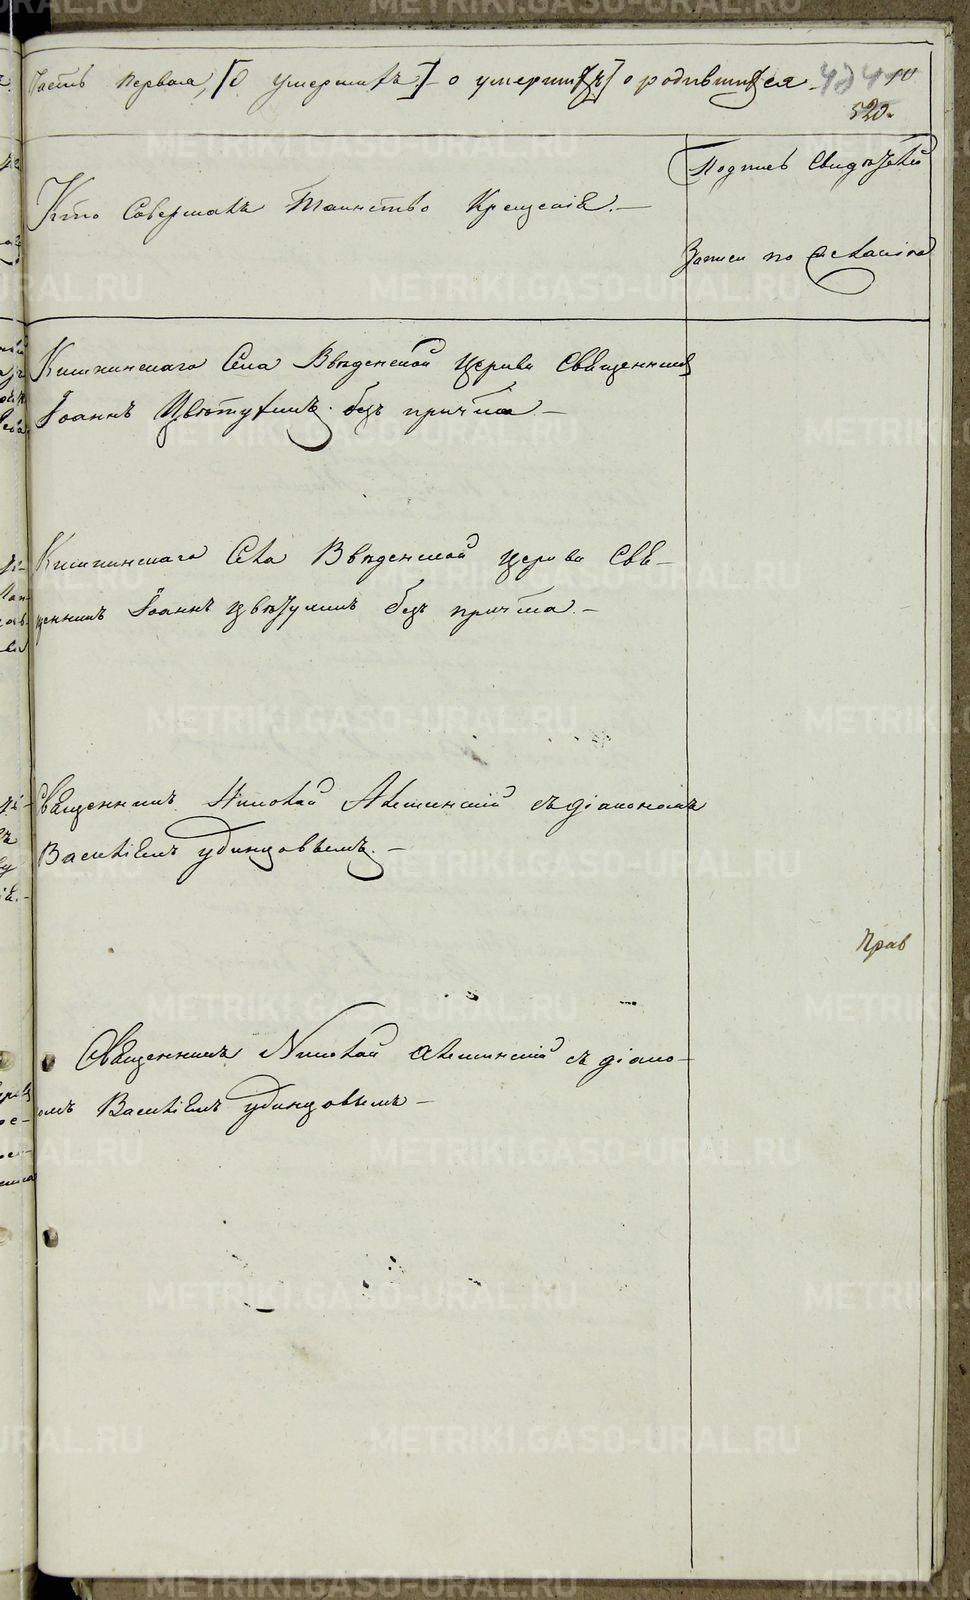 Часть первая, [О умершихъ.] о умерши[хъ] о родившихся 424 10
520.
Кто Совершалъ Таинство Крещенія.—
Подпись Свидѣтелей
Записи по желанію
Кишкинскаго Села Введенской Церкви Священникъ
Іоаннъ Цвѣтухинъ. безъ причта.—
Кишкинскаго Села Введенской церкви Свя-
щенникъ Іоаннъ Цвѣтухинъ безъ причта.—
Священникъ Николай съ діакономъ
Василіемъ Удинцовымъ.—
Прав
Священникъ Николай съ діако-
омъ Василіемъ Удинцовымъ—
METRIKI.GASO-URAL.RU